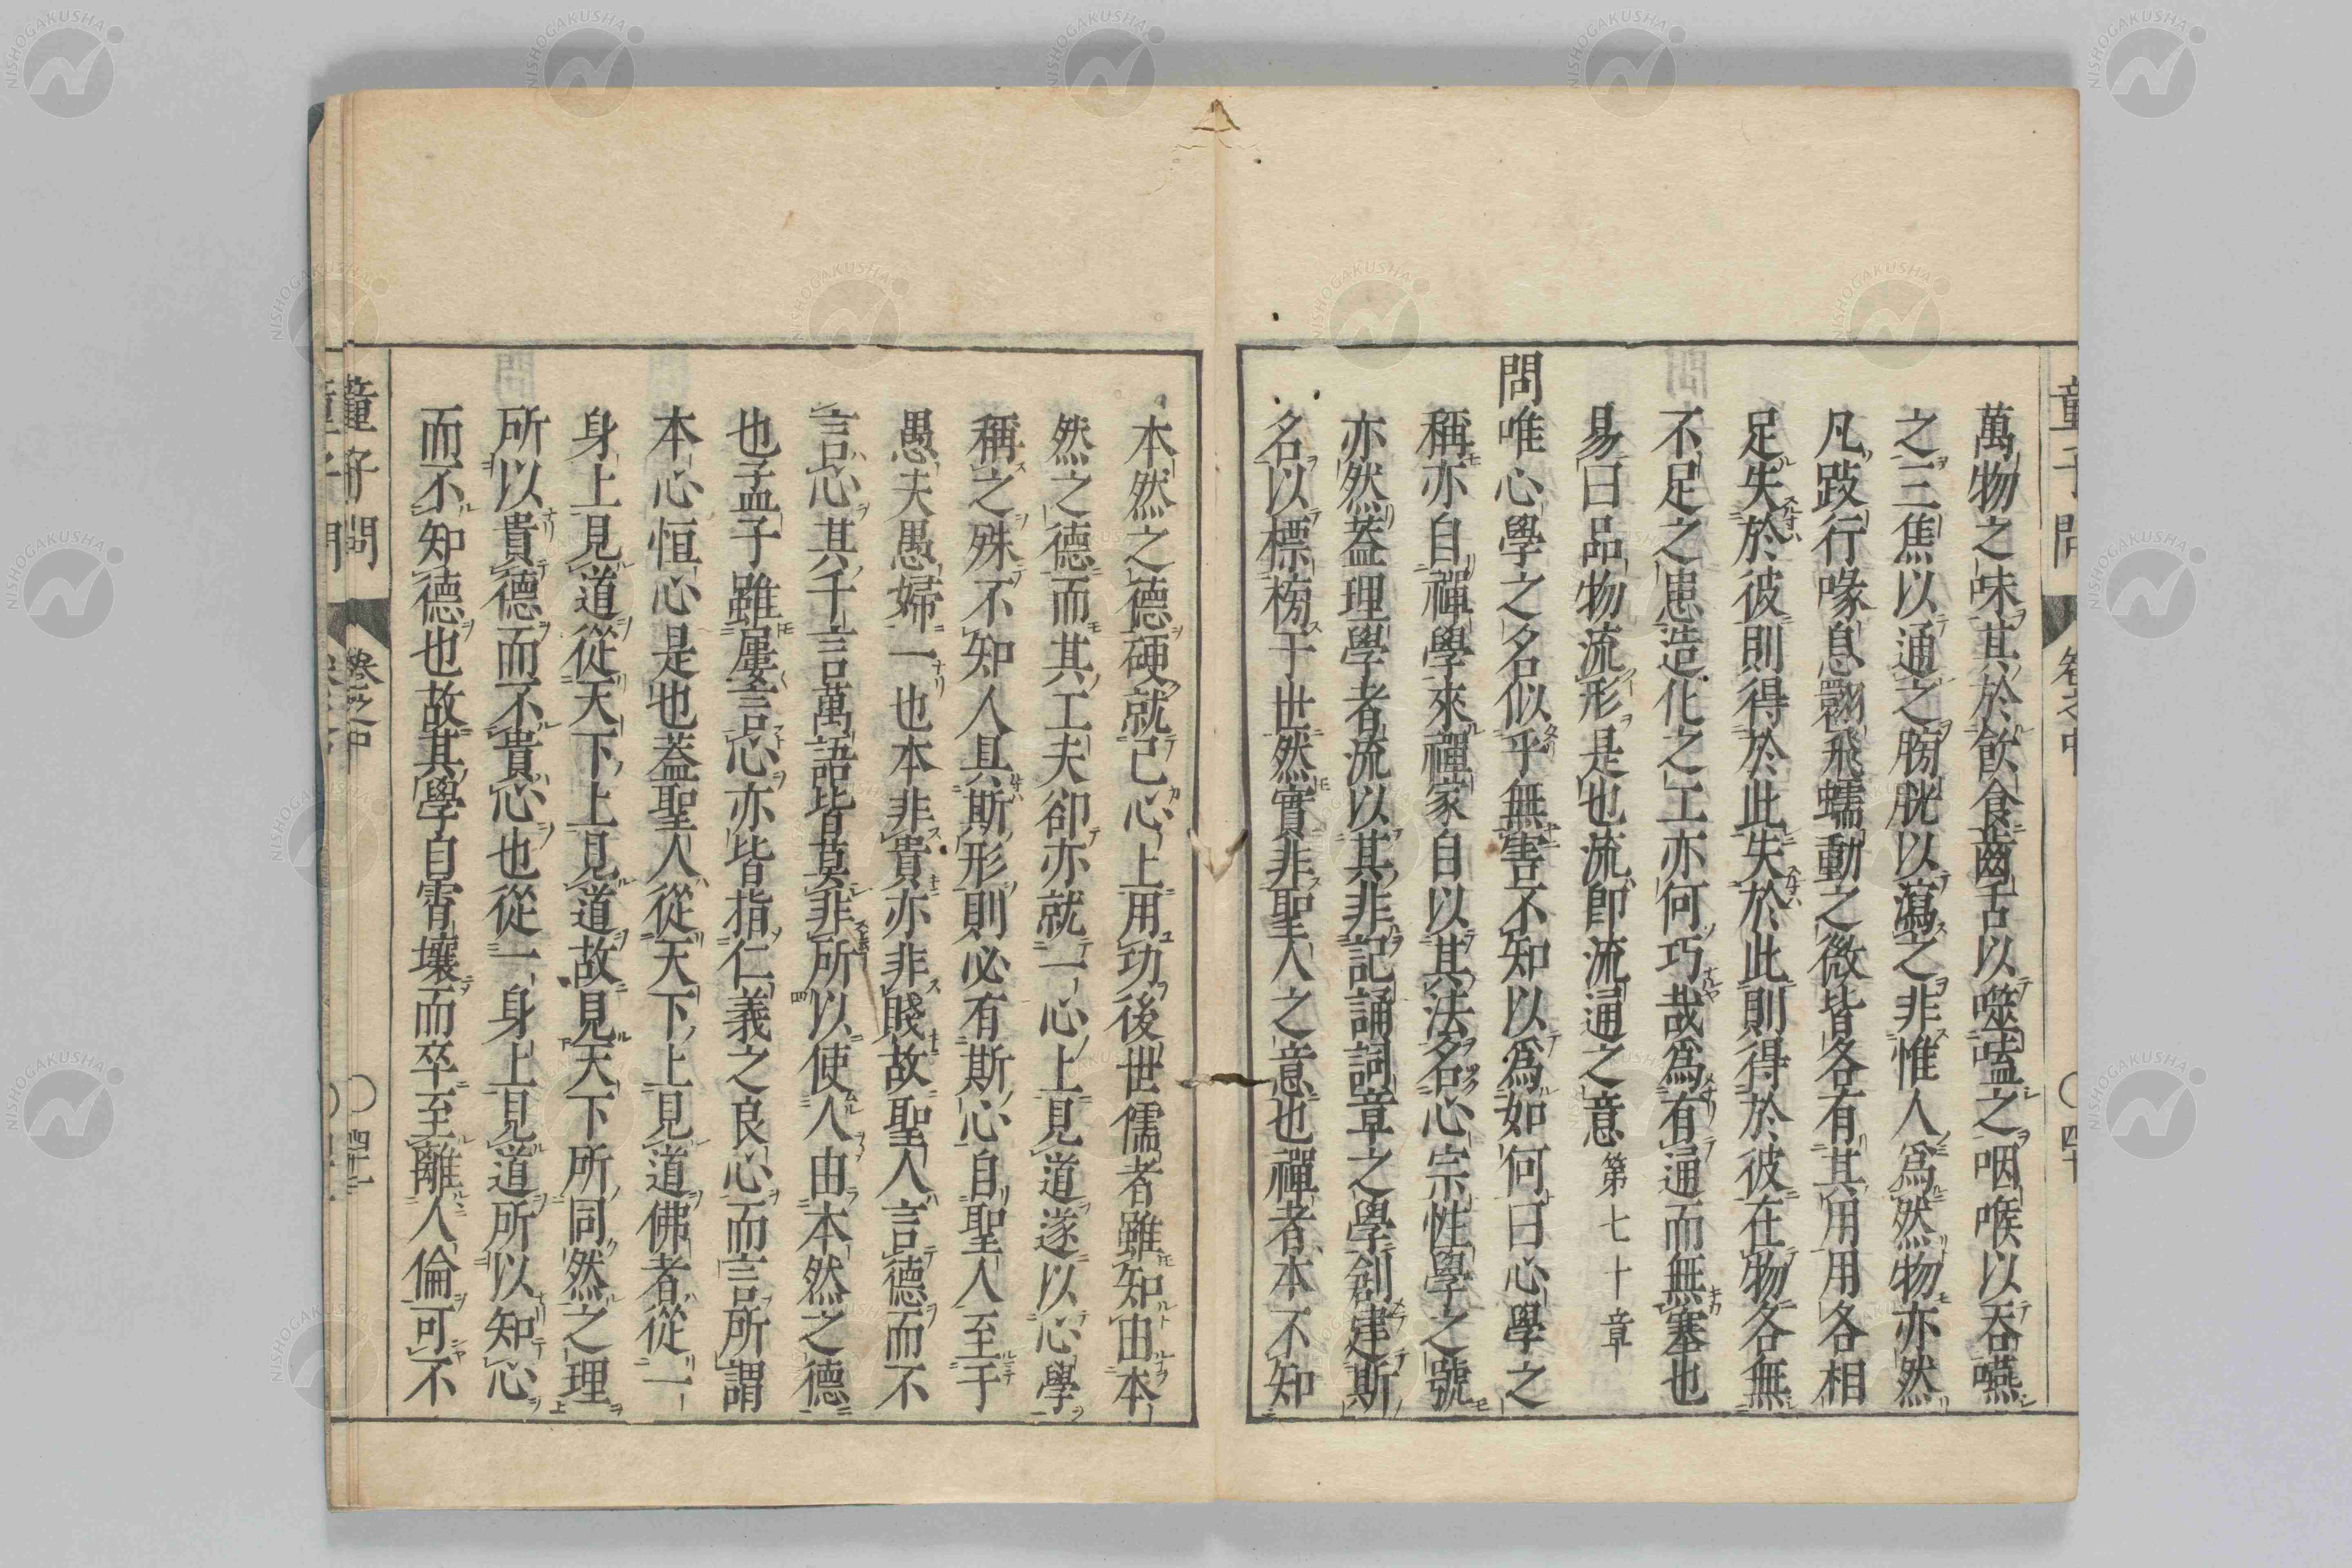 萬物之味其於飲食齒舌以噬嗑之咽喉以吞嚥
之三焦以通之膀胱以瀉之非惟人爲然物亦然
凡跂行喙息翾飛蠕動之微皆各有其用用各相
足失於彼則得於此失於此則得於彼在物各無
不足之患造化之工亦何巧哉爲有通而無塞也
易曰品物流形是也流即流通之意 第七十章
問唯心學之名似乎無害不知以爲如何曰心學之
稱亦自禪學來禪家自以其法名心宗性學之號
亦然蓋理學者流以其非記誦詞章之學創建斯
名以標榜于世然實非聖人之意也禪者本不知
本然之德硬就己心上用功後世儒者雖知由本
然之德而其工夫卻亦就一心上見道遂以心學
稱之殊不知人具斯形則必有斯心自聖人至于
愚夫愚婦一也本非貴亦非賤故聖人言德而不
言心其千言萬語皆莫非所以使人由本然之德
也孟子雖屢言心亦皆指仁義之良心而言所謂
本心恒心是也蓋聖人從天下上見道佛者從一
身上見道從天下上見道故見天下所同然之理
所以貴德而不貴心也從一身上見道所以知心
而不知德也故其學自霄壤而卒至離人倫可不
童子問
卷之中
〇四十一
童子問
卷之中